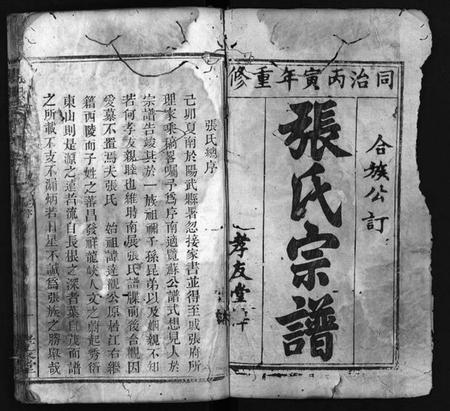 同治丙寅年重修
合族公訂
張氏宗譜
孝友堂
張氏總序
己卯夏南於陽武縣署忽接家書並得至戚張府所
理家乘稿囑予為序南適覽蘇公譜式想見人於
宗譜告竣其於一族祖禰子孫昆弟以及姻親不知
若何孝友親睦也維聘南展張氏譜牒前後合觀因
愛慕不置焉夫張氏 始祖諱達觀公原居江右繼
籍西陵而子姓之蕃昌發祥龍峽人文之蔚起秀衍
東山則是源之遠者流自長根之深者葉自茂而譜
之所載不支不漏炳若日星不誠為張族之勝舉哉